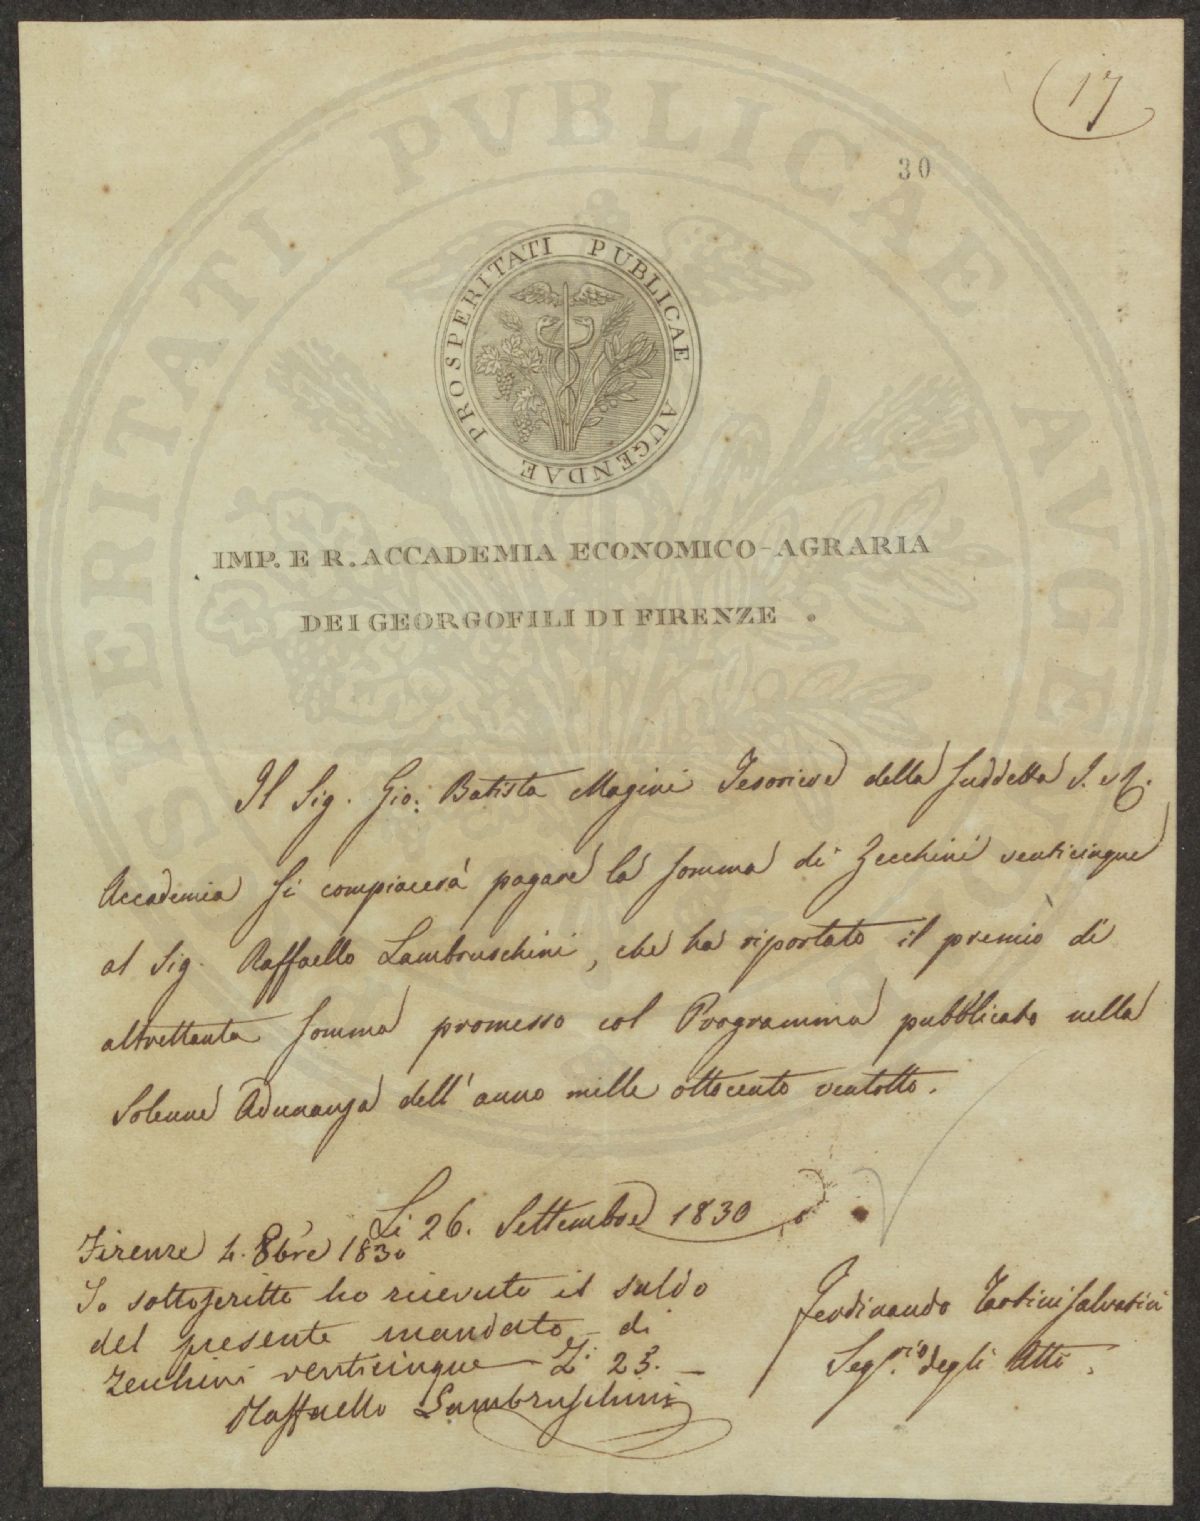 17
30
PROSPERITATI PUBLICAE AUGENDAE
IMP. E R. ACCADEMIA ECONOMICO-AGRARIA
DEI GEORGOFILI DI FIRENZE.
Il Sig. Gio: Batista Magini Tesoriere della suddetta I. e R.
Accademia si compiacerà pagare la somma di Zecchini venticinque
al Sig. Raffaello Lambruschini, che ha riportato il premio di
altrettanta somma promesso col Programma pubblicato nella
Solenne Adunanza dell'anno mille ottocento ventotto.
Li 26. Settembre 1830
Firenze 4. 8bre 1830
Io sottoscritto ho ricevuto il saldo
del presente mandato di
Zecchini venticinque Z: 25. —
Raffaello Lambruschini
Ferdinando Tartini Salvatici
Seg.rio degli Atti.
PROSPERITATI PVBLICAE AVGENDAE